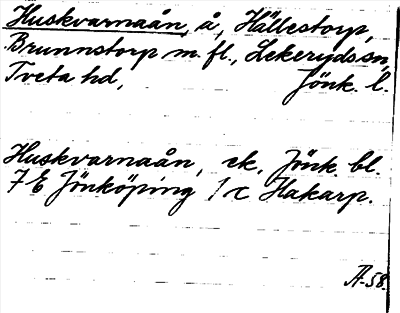 Huskvarnaån, å, Hällestorp,
Brunnstorp m. fl., Lekerydssn,
Tveta hd, Jönk. l.
Huskvarnaån, ek. Jönk. bl.
7 E Jönköping 1 c Hakarp.
A-58.